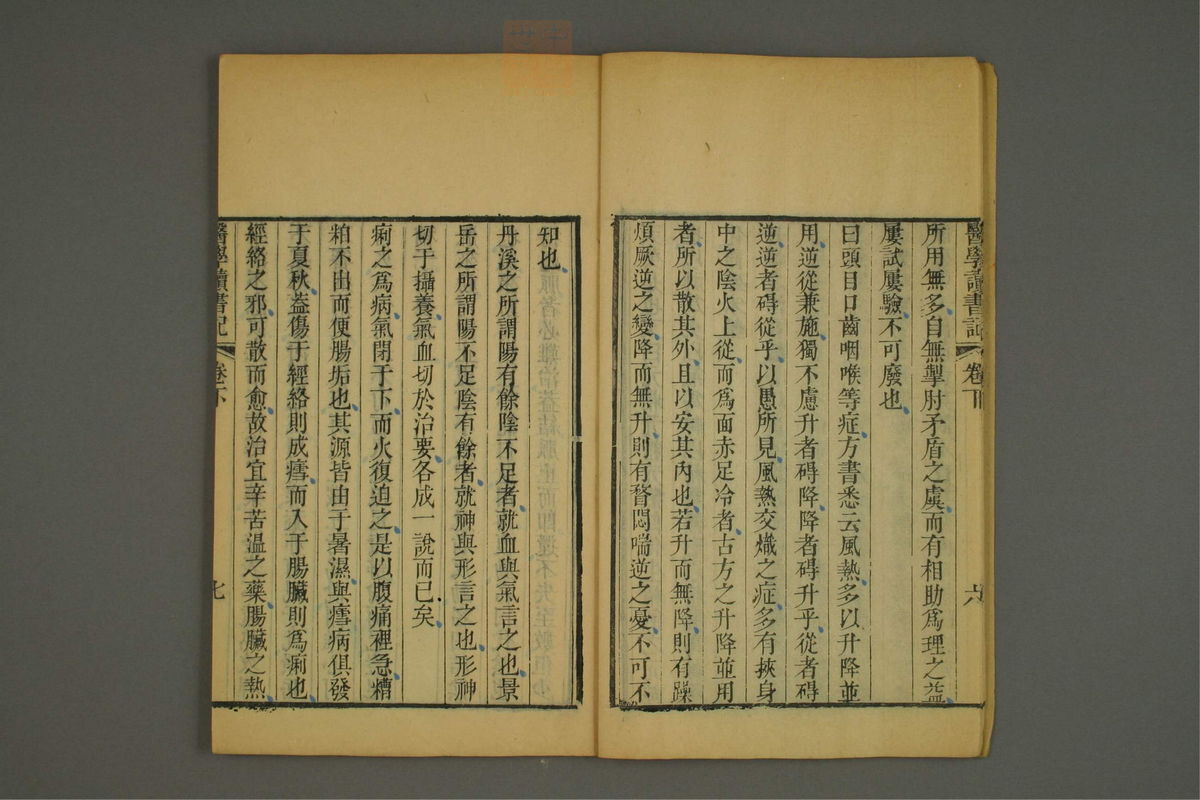 醫學讀書記 卷下 六
所用無多自無掣肘矛盾之虞而有相助爲理之益
屢試屢驗不可廢也
曰頭目口齒咽喉等症方書悉云風熱多以升降並
用逆從兼施獨不慮升者碍降降者碍升乎從者碍
逆逆者碍從乎以愚所見風熱交熾之症多有挾身
中之陰火上從而爲面赤足冷者古方之升降並用
者所以散其外且以安其內也若升而無降則有躁
煩厥逆之變降而無升則有瞀悶喘逆之憂不可不
知也
丹溪之所謂陽有餘陰不足者就血與氣言之也景
岳之所謂陽不足陰有餘者就神與形言之也形神
切于攝養氣血切於治要各成一說而已矣
痢之爲病氣閉于下而火復迫之是以腹痛裡急糟
粕不出而便腸垢也其源皆由于暑濕與瘧病俱發
于夏秋蓋傷于經絡則成瘧而入于腸臟則爲痢也
經絡之邪可散而愈故治宜辛苦溫之藥腸臟之熱
醫學讀書記 卷下 七